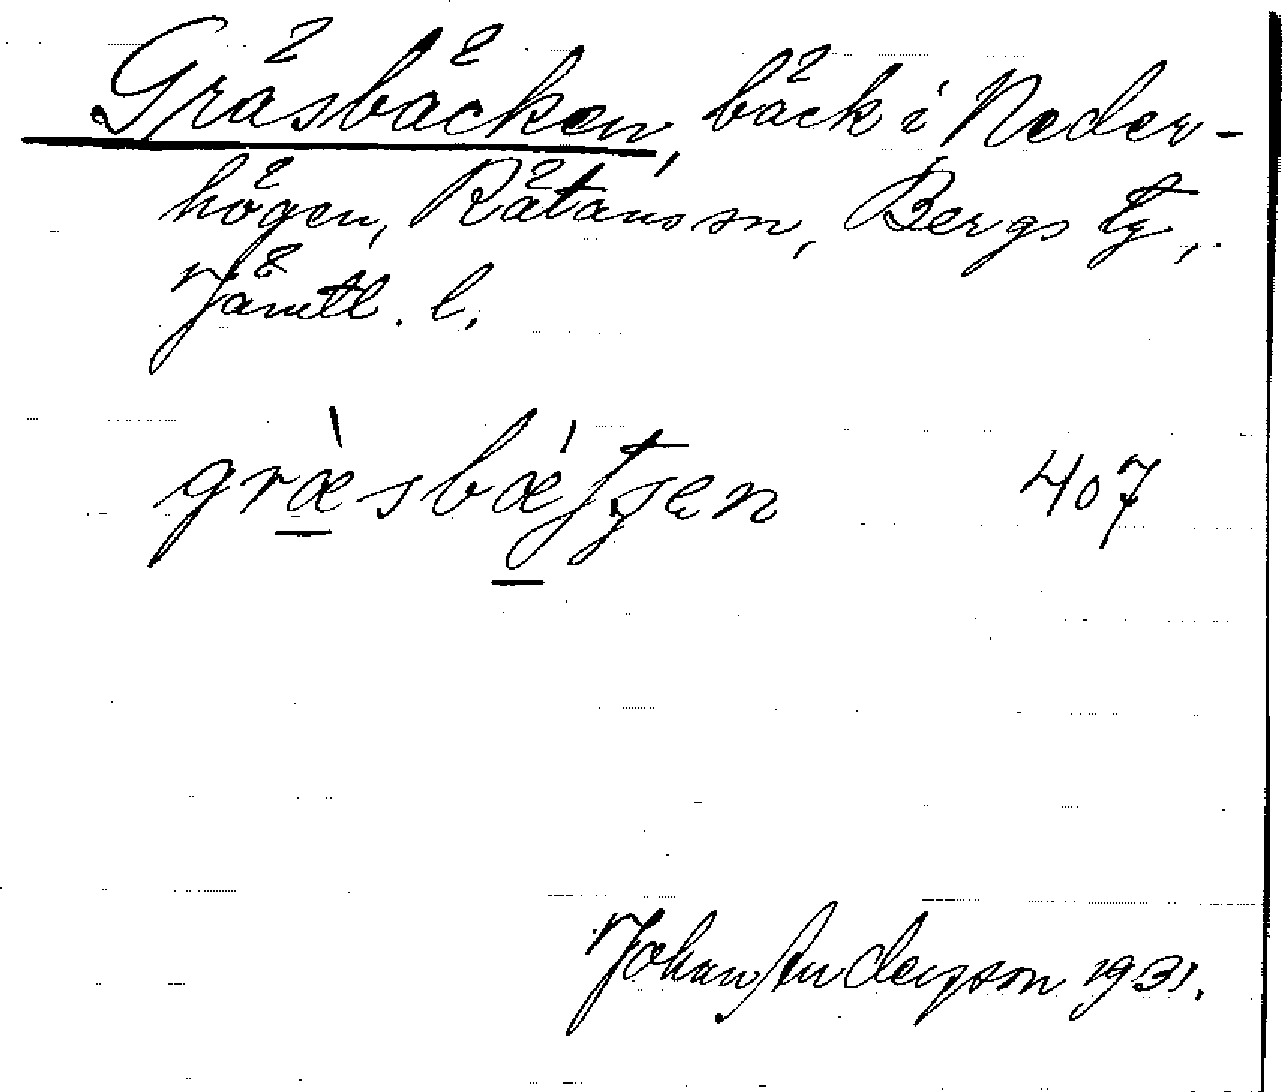 Gräsbäcken, bäck i Neder-
högen, Rätans sn, Bergs tg,
Jämtl. l.
græ̀sbǽʃtʒen 407
Johan Andersson 1931.